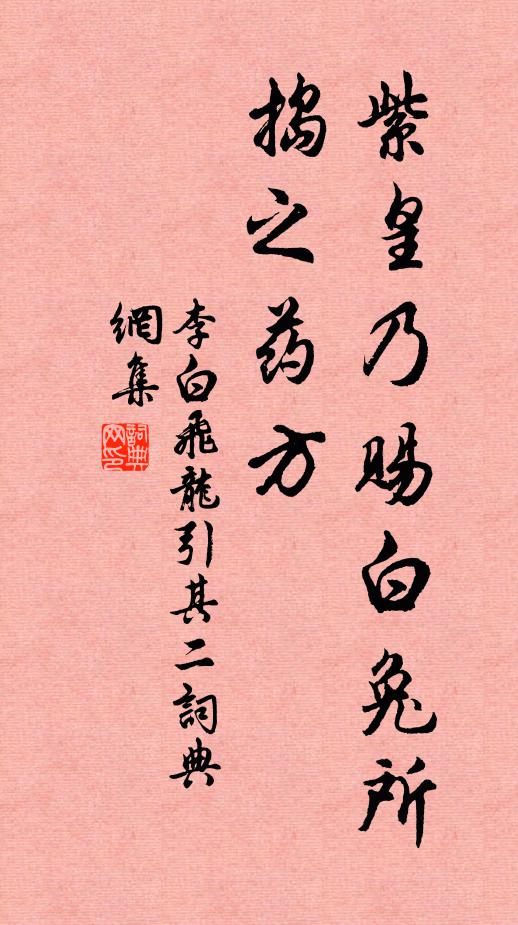 紫皇乃赐白兔所
捣之药方
李白飛龍引其二詞典
網集
詞典
网印